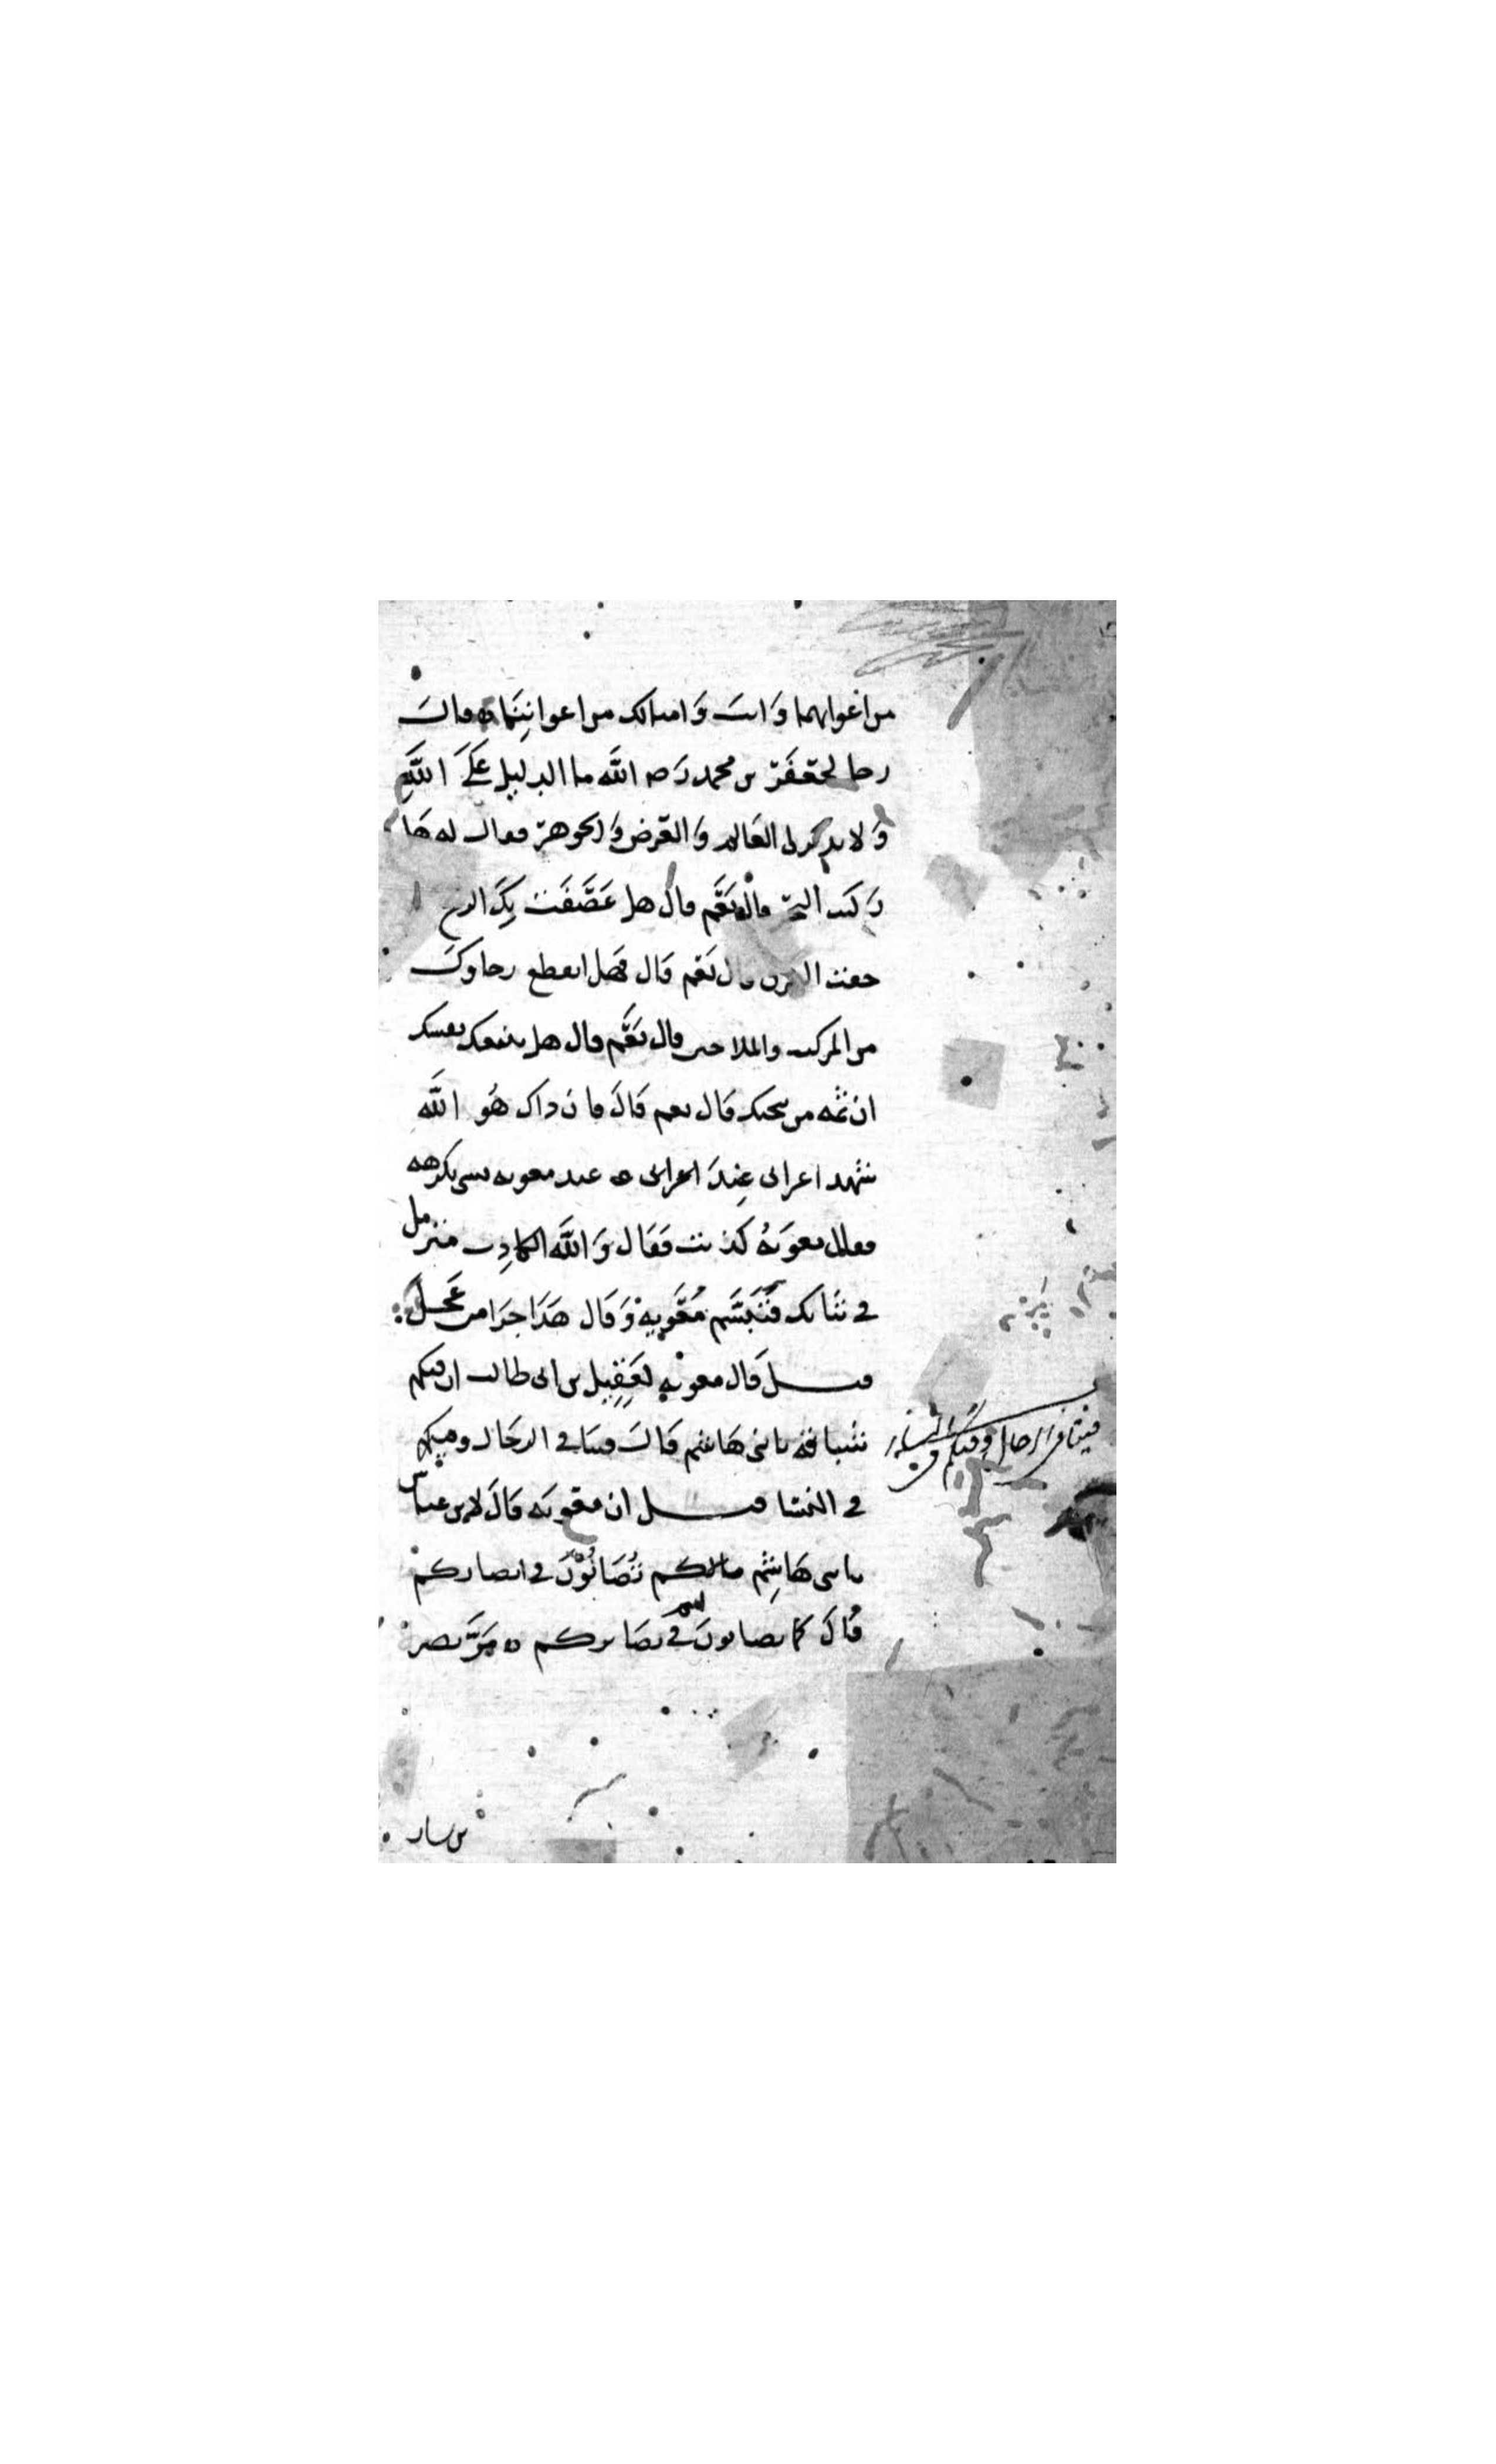 من اعوانهما وانت وامثالك من اعوانهما وقال
رجل لجعفر بن محمد رضه الله ما الدليل على الله
ولا تذكر لى العالم والعرض والجوهر فقال له هل
ركبت البحر قال نعم قال هل عصفت بكم الريح
خفت الغرق قال نعم قال فهل انقطع رجاوك
من المركب والملاحين قال نعم قال هل تتبعت نفسك
ان ثمه من ينجيك قال نعم قال فان ذاك هو الله
شهد اعرابى عند معويه بشى يكرهه
فقال معويه كذبت فقال والله الكاذب متزمل
فى ثيابك فتبسم معويه وقال هذا جزا من عجل
قيل قال معويه لعقيل بن ابى طالب ان فيكم
شبقا يا بنى هاشم قال فينا فى الرجال وفيكم
فى النسا قيل ان معويه قال لابن عباس
يا بنى هاشم ما لكم تصابون فى ابصاركم
قال كما تصابون فى بصايركم مر بصر
فينا فى الرجال وفيكم فى النساء
بن سيار